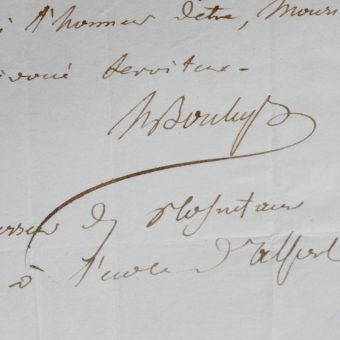 l'honneur d'être, Mons
évoué serviteur.
HBouley
sseur de
à l'école d'Alfort